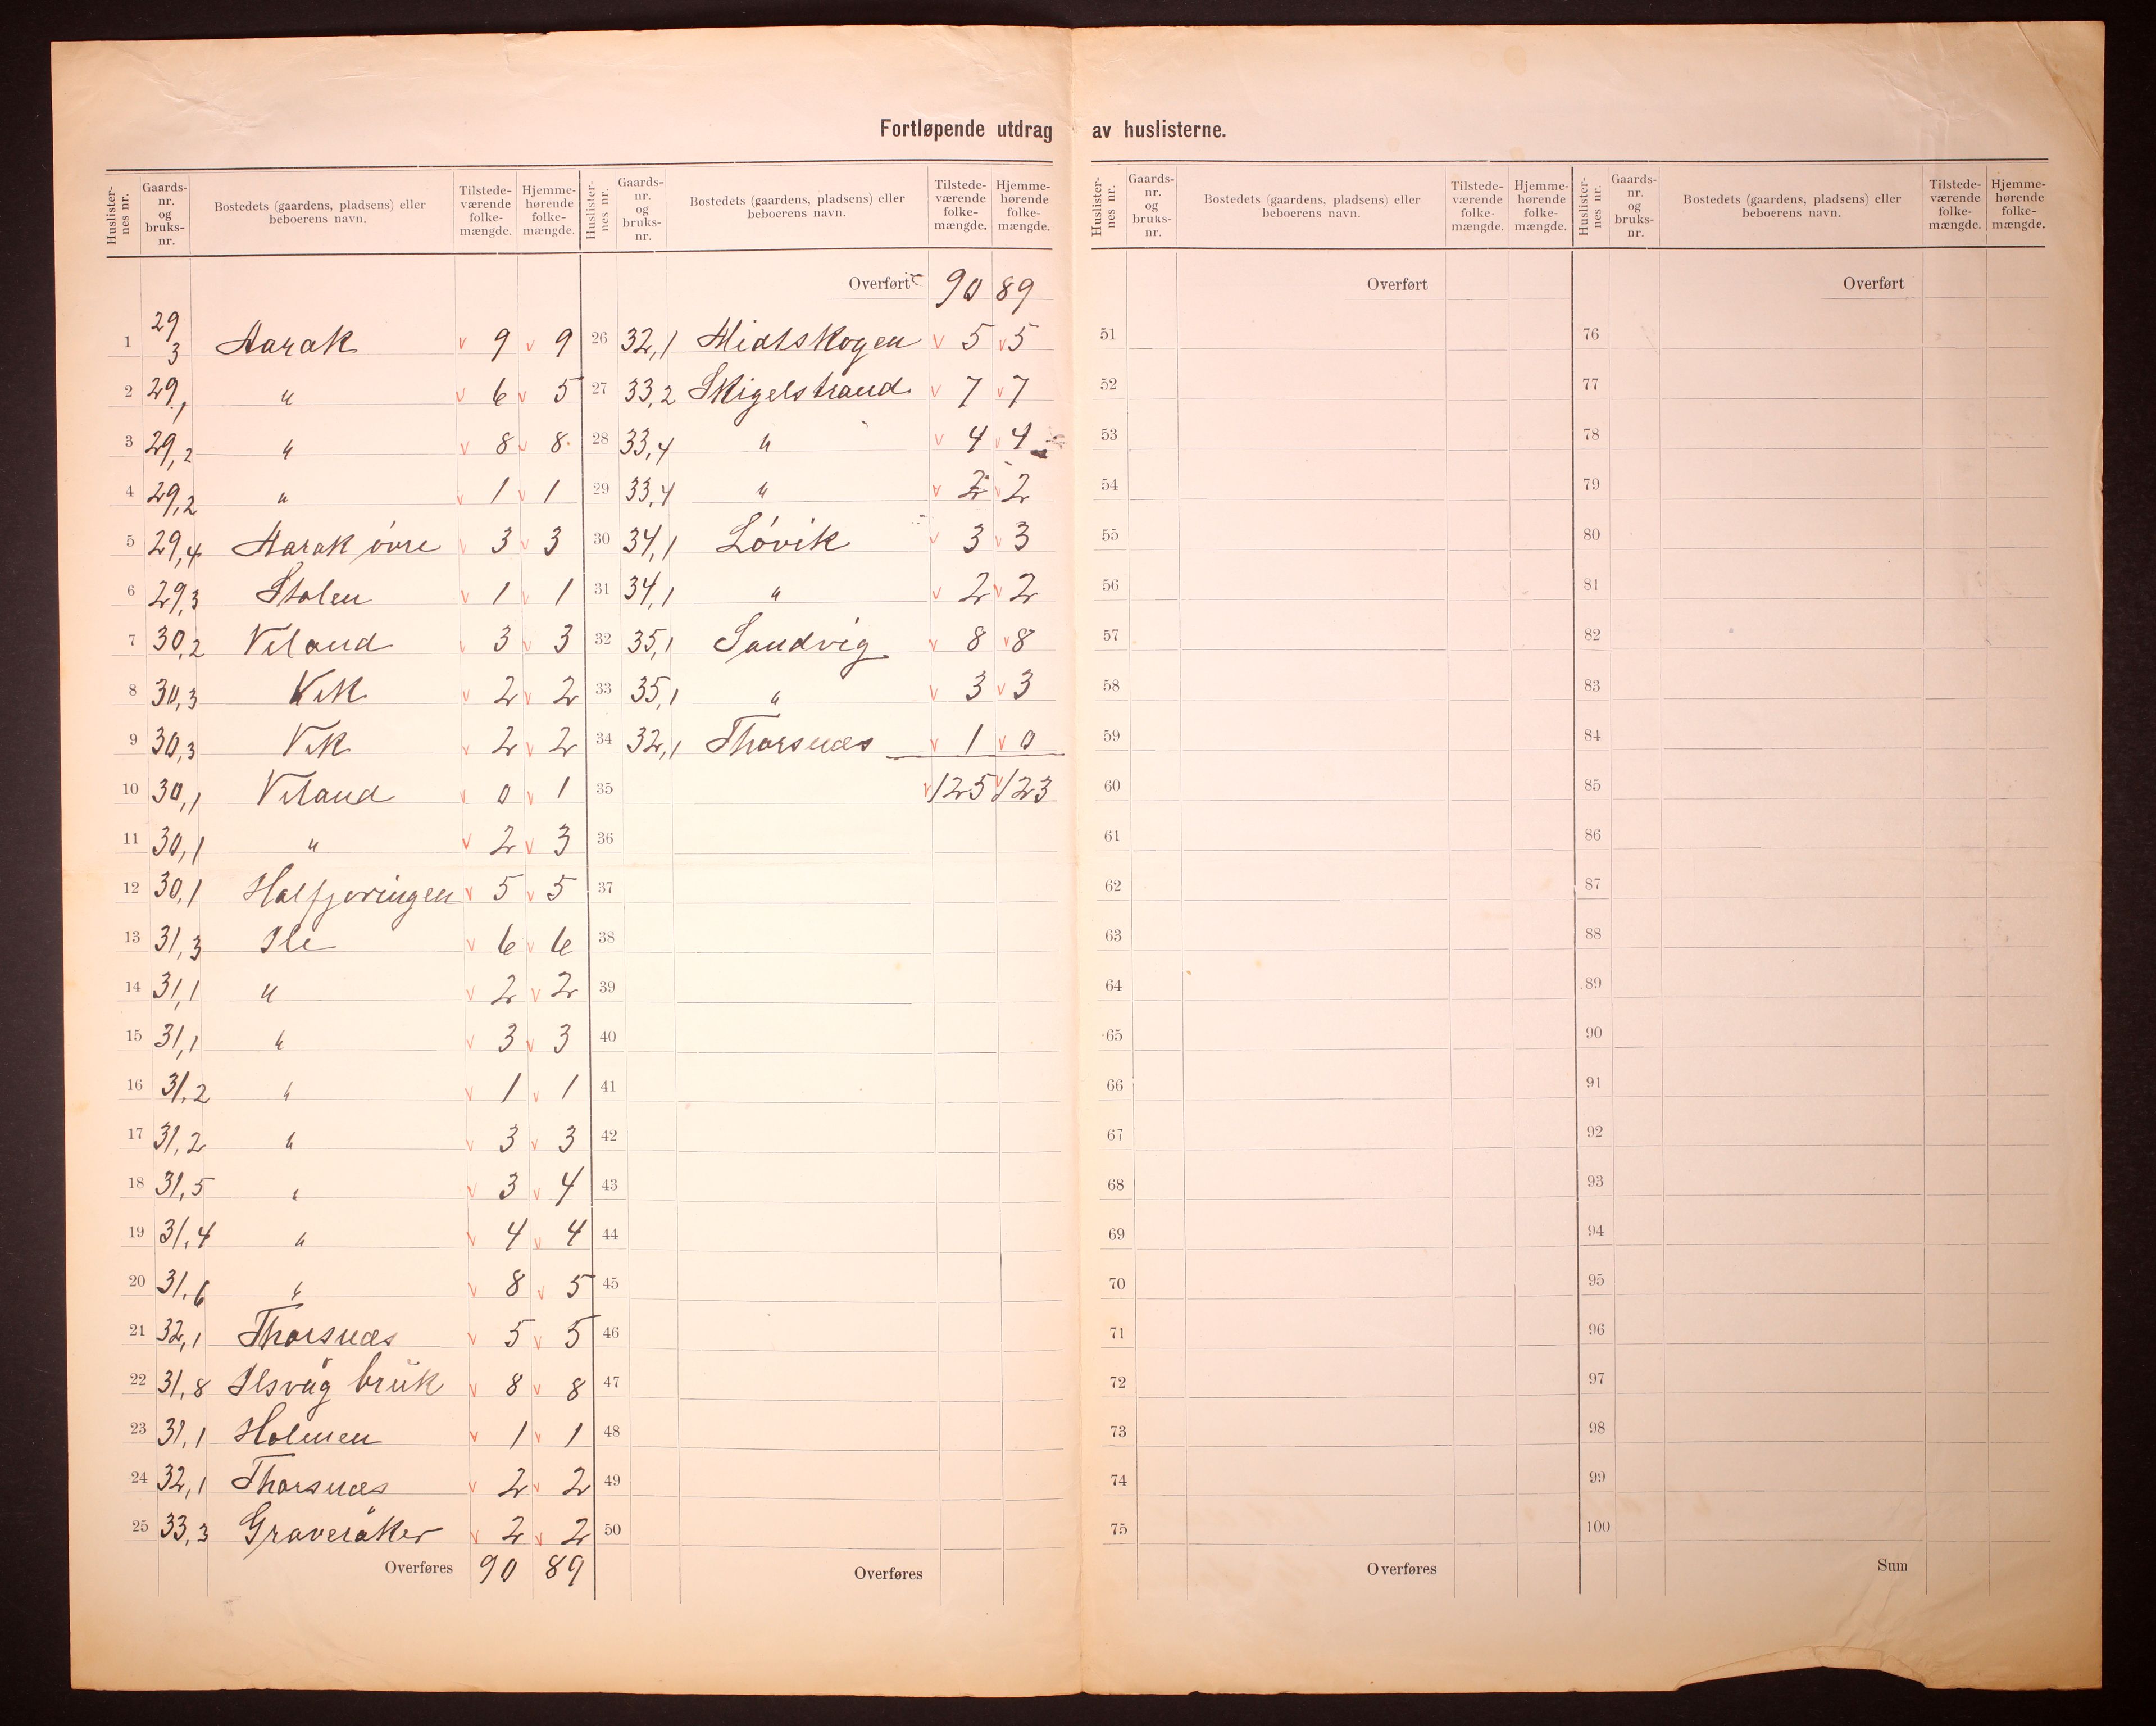 Fortløpende utdrag av huslisterne.
Huslister-nes nr. Gaards-nr. og bruks-nr. Bostedets (gaardens, pladsens) eller beboerens navn. Tilstede-værende folke-mængde. Hjemme-hørende folke-mængde.
1 29 3 Aarak v 9 v 9
2 29,1 " v 6 v 5
3 29,2 " v 8 v 8
4 29,2 " v 1 v 1
5 29,4 Aarak övre v 3 v 3
6 29,3 Stolen v 1 v 1
7 30,2 Viland v 3 v 3
8 30,3 Vik v 2 v 2
9 30,3 Vik v 2 v 2
10 30,1 Viland v 0 v 1
11 30,1 " v 2 v 3
12 30,1 Halfjeringen v 5 v 5
13 31,3 Ile v 6 v 6
14 31,1 " v 2 v 2
15 31,1 " v 3 v 3
16 31,2 " v 1 v 1
17 31,2 " v 3 v 3
18 31,5 " v 3 v 4
19 31,4 " v 4 v 4
20 31,6 " v 8 v 5
21 32,1 Thorsnæs v 5 v 5
22 31,8 Ilsvåg bruk v 8 v 8
23 31,1 Holmen v 1 v 1
24 32,1 Thorsnæs v 2 v 2
25 33,3 Graveråker v 2 v 2
Overføres 90 89
Huslister-nes nr. Gaards-nr. og bruks-nr. Bostedets (gaardens, pladsens) eller beboerens navn. Tilstede-værende folke-mængde. Hjemme-hørende folke-mængde.
Overført 90 89
26 32,1 Midtskogen v 5 v 5
27 33,2 Skigelstrand v 7 v 7
28 33,4 " v 4 v 4
29 33,4 " v 2 v 2
30 34,1 Lövik v 3 v 3
31 34,1 " v 2 v 2
32 35,1 Sandvig v 8 v 8
33 35,1 " v 3 v 3
34 32,1 Thorsnæs v 1 v 0
35 v 125 v 123
36
37
38
39
40
41
42
43
44
45
46
47
48
49
50
Overføres
Huslister-nes nr. Gaards-nr. og bruks-nr. Bostedets (gaardens, pladsens) eller beboerens navn. Tilstede-værende folke-mængde. Hjemme-hørende folke-mængde.
Overført
51
52
53
54
55
56
57
58
59
60
61
62
63
64
65
66
67
68
69
70
71
72
73
74
75
Overføres
Huslister-nes nr. Gaards-nr. og bruks-nr. Bostedets (gaardens, pladsens) eller beboerens navn. Tilstede-værende folke-mængde. Hjemme-hørende folke-mængde.
Overført
76
77
78
79
80
81
82
83
84
85
86
87
88
89
90
91
92
93
94
95
96
97
98
99
100
Sum